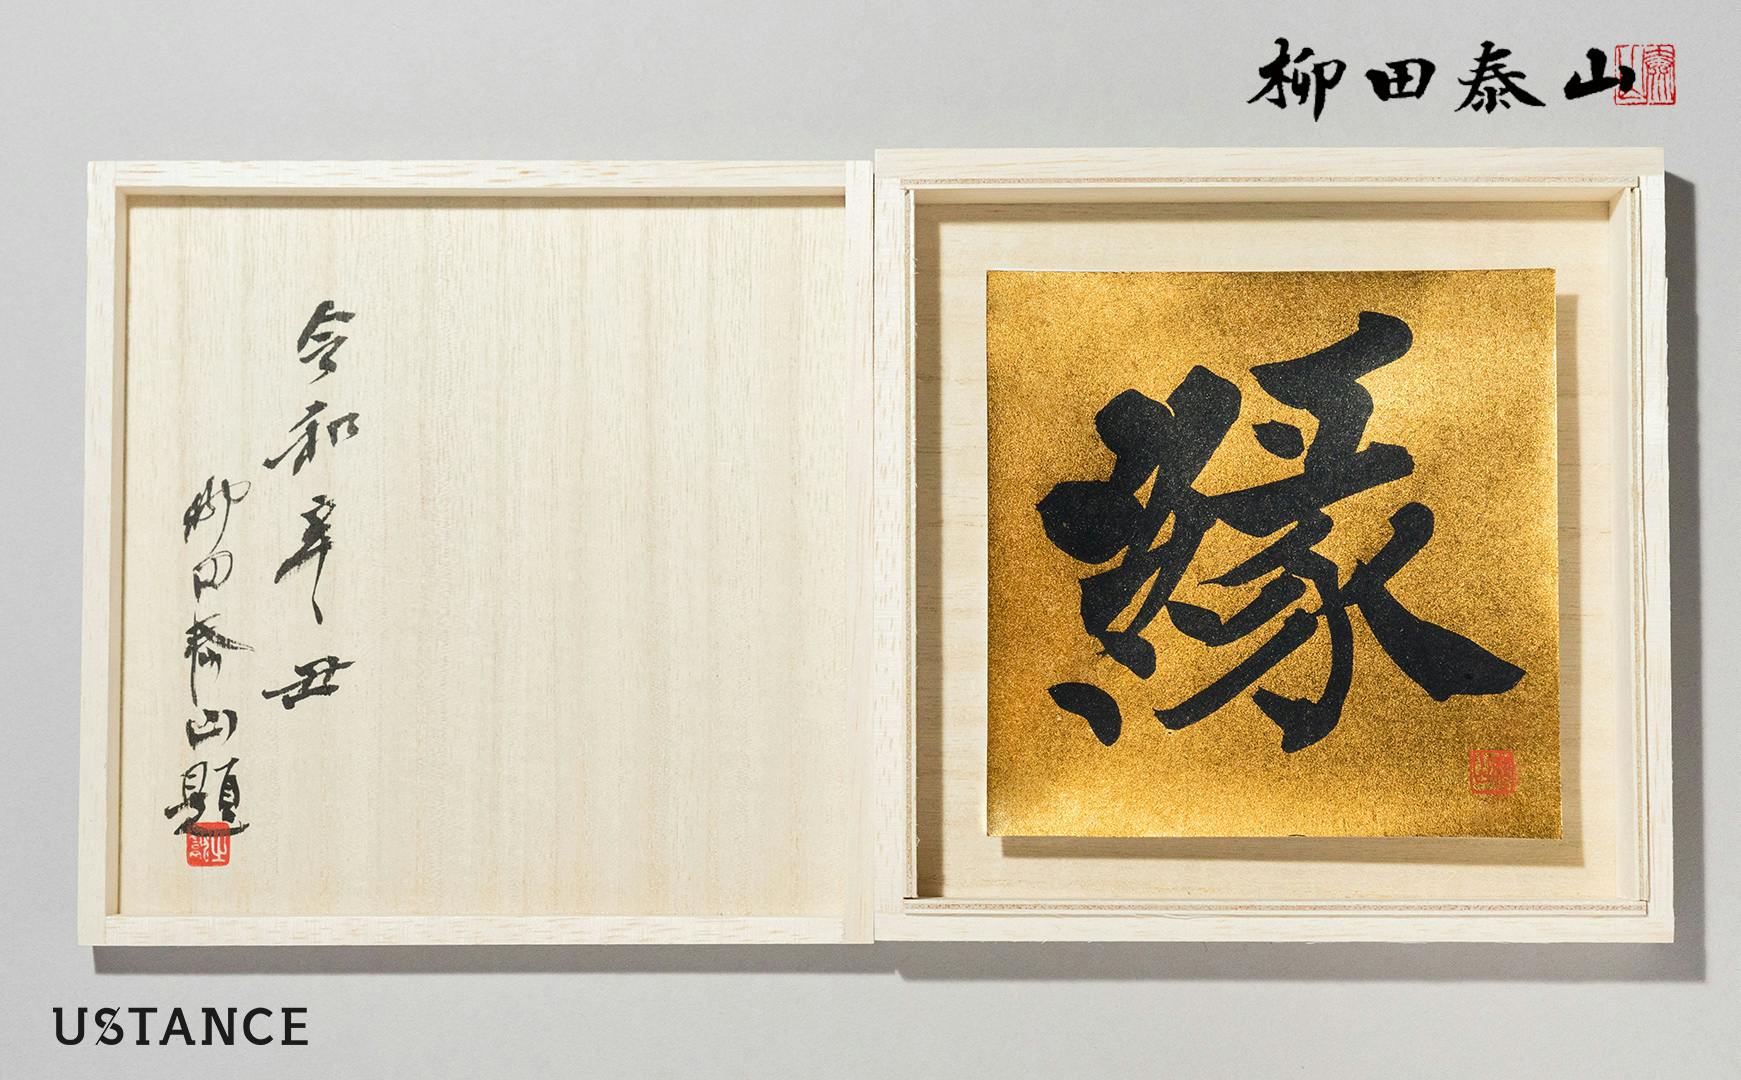 柳田泰山
令和辛丑
柳田泰山題
縁
USTANCE